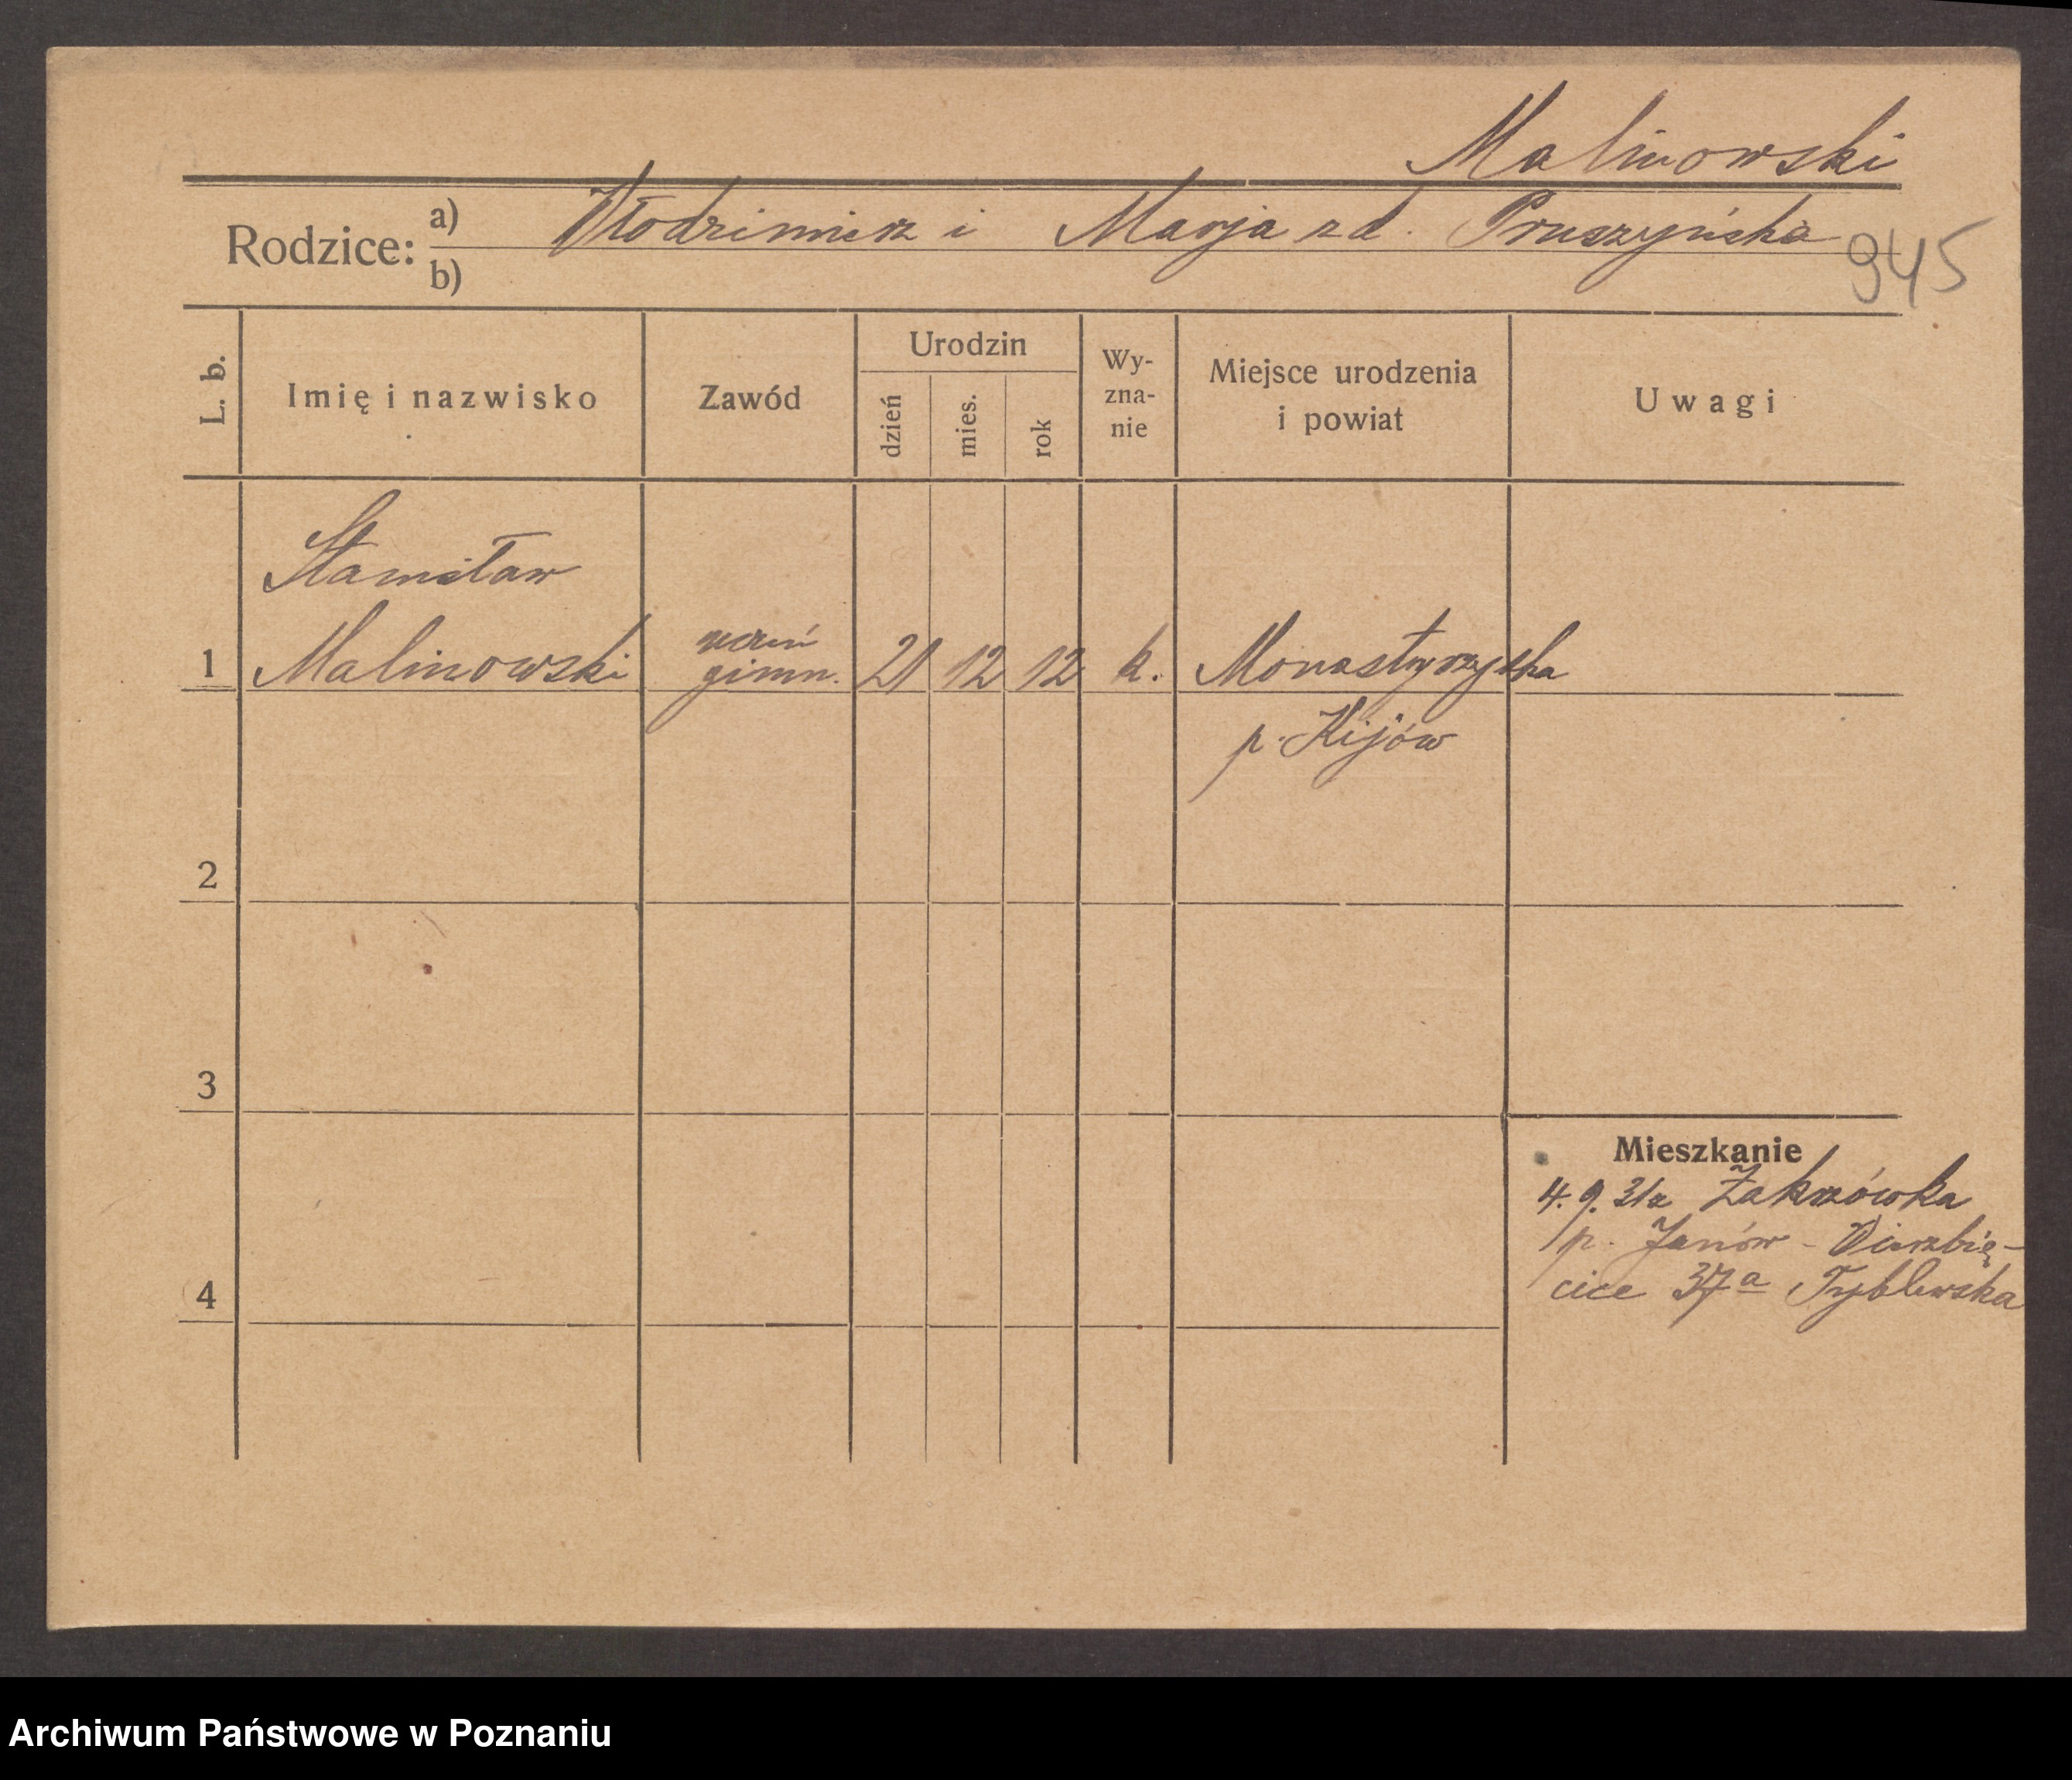 Malinowski
Rodzice: a) Włodzimierz i Marja zd. Pruszyńska
b)
945
L. b.
Imię i nazwisko
Zawód
Urodzin
dzień
mies.
rok
Wy-
zna-
nie
Miejsce urodzenia
i powiat
Uwagi
Stanisław
1 Malinowski uczeń gimn. 21 12 12 k. Monastyrzyska
p. Kijów
2
3
4
Mieszkanie
4.9.31 z Zakrzówka
p. Janów - Wierzbię-
cice 37a Tyblewska
Archiwum Państwowe w Poznaniu